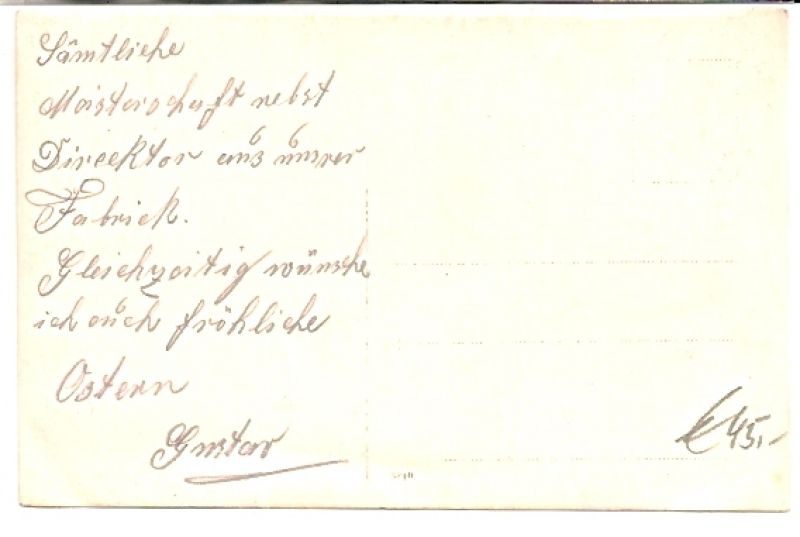 Sämtliche
Meisterschaft nebst
Direcktor aus unsrer
Fabrick.
Gleichzeitig wünsche
ich auch fröhliche
Ostern
Gustav
€ 45,-